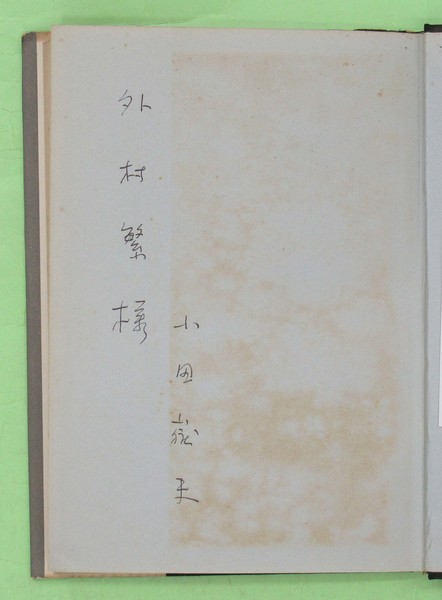 外村繁様
小田嶽夫